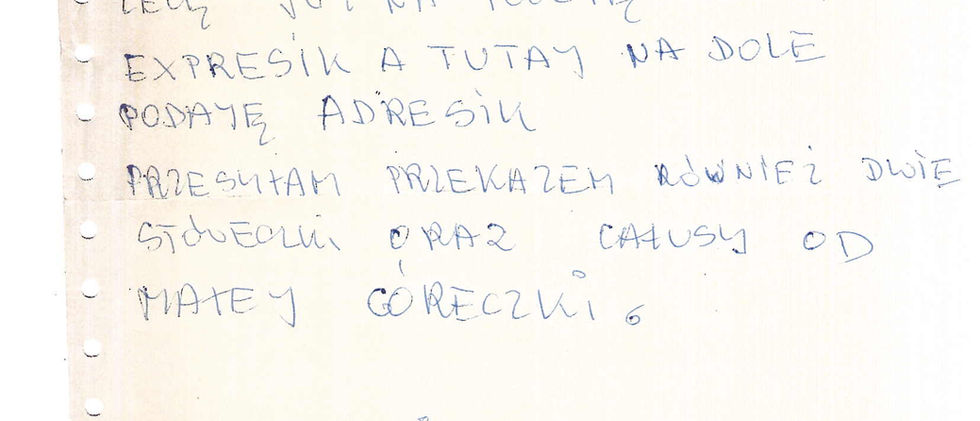 LECĘ JUŻ NA POCZTĘ
EXPRESIK A TUTAJ NA DOLE
PODAJĘ ADRESIK
PRZESYŁAM PRZEKAZEM RÓWNIEŻ DWIE
STÓWECZKI ORAZ CAŁUSY OD
MAŁEJ CÓRECZKI.